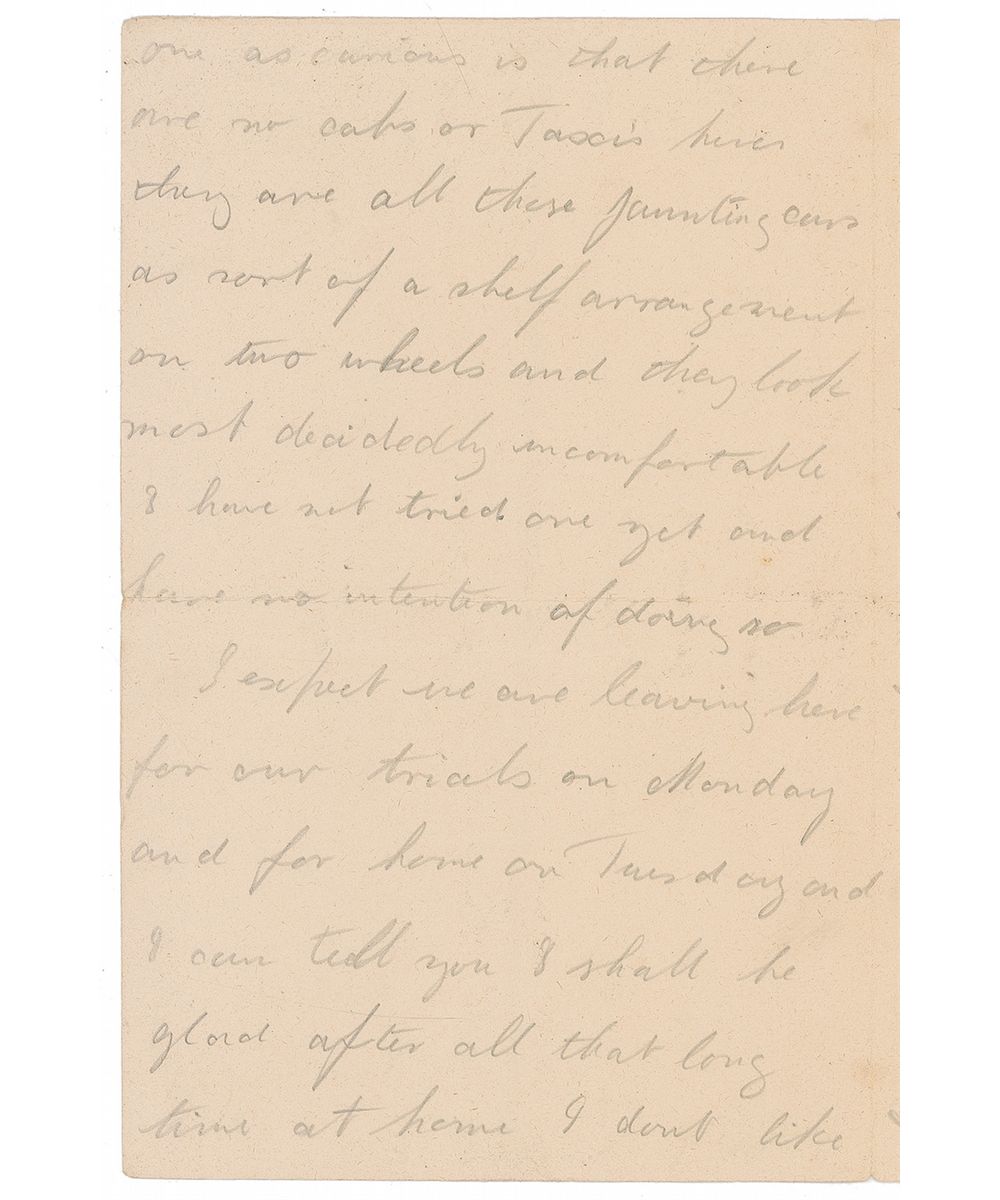 one as curious is that there
are no cabs or Taxis here
they are all these jaunting cars
as sort of a shelf arrangement
on two wheels and they look
most decidedly uncomfortable
I have not tried one yet and
have no intention of doing so
I expect we are leaving here
for our trials on Monday
and for home on Tuesday and
I can tell you I shall be
glad after all that long
time at home I dont like